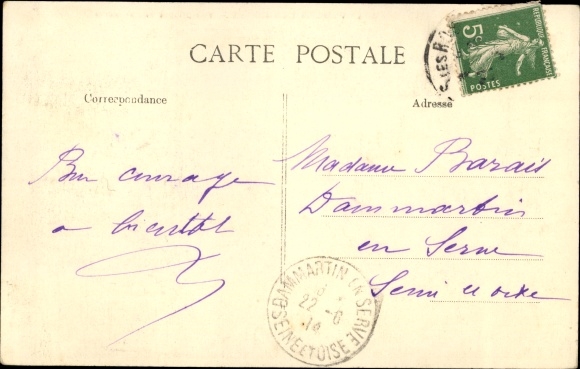 CARTE POSTALE
Correspondance
Adresse
5c
RÉPUBLIQUE FRANÇAISE
POSTES
Bon courage
a bientôt
Madame Barait
Dammartin
en Serve
Seine et oise
DAMMARTIN EN SERVE
22 - 6
14
SEINE ET OISE